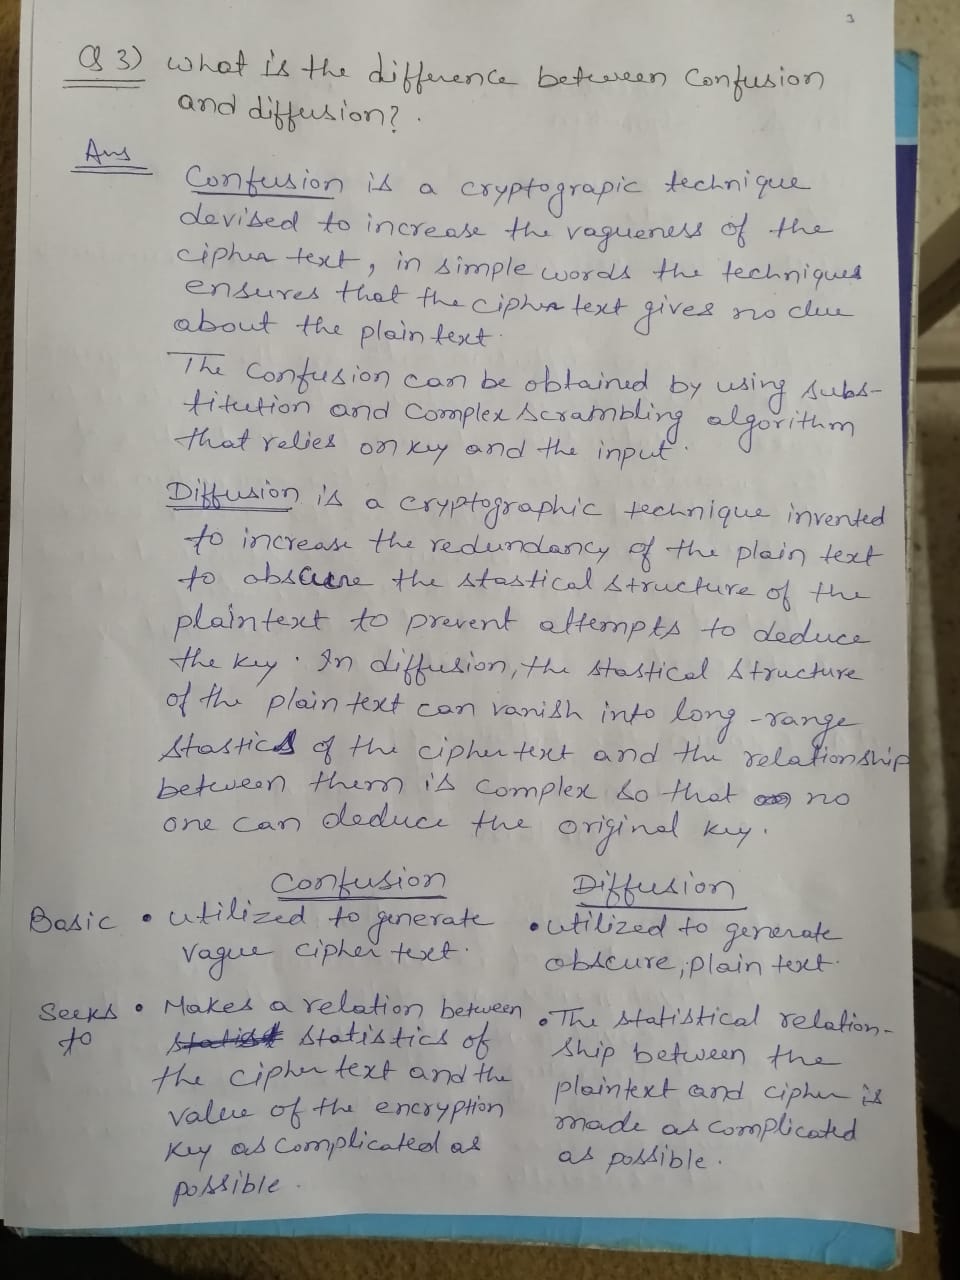 3
Q 3) what is the difference between Confusion
and diffusion?.
Ans
Confusion is a cryptograpic technique
devised to increase the vagueness of the
cipher text, in simple words the techniques
ensures that the cipher text gives no clue
about the plain text.
The Confusion can be obtained by using subs-
titution and Complex Scrambling algorithm
that relies on key and the input.
Diffusion is a cryptographic technique invented
to increase the redundancy of the plain text
to obscure the stastical structure of the
plaintext to prevent attempts to deduce
the key. In diffusion, the stastical structure
of the plain text can vanish into long-range
stastics of the cipher text and the relationship
between them is complex so that no
one can deduce the original key.
Confusion Diffusion
Basic • utilized to generate • utilized to generate
vague cipher text. obscure, plain text.
Seeks • Makes a relation between • The statistical relation-
to statistics of ship between the
the cipher text and the plaintext and cipher is
value of the encryption made as complicated
key as complicated as as possible.
possible.